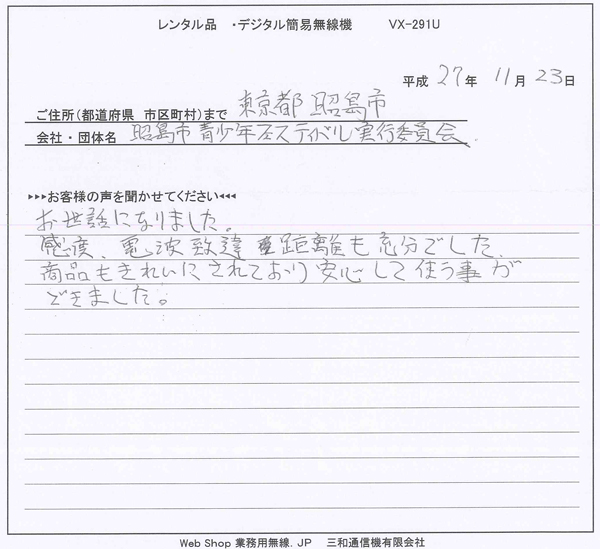 レンタル品 ・デジタル簡易無線機 VX-291U
平成 27年 11月 23日
ご住所(都道府県 市区町村)まで 東京都 昭島市
会社・団体名 昭島市青少年フェスティバル実行委員会
▸▸▸お客様の声を聞かせてください◂◂◂
お世話になりました。
感度、電波致達距離も充分でした。
商品もきれいにされており安心して使う事が
できました。
Web Shop 業務用無線.JP 三和通信機有限会社